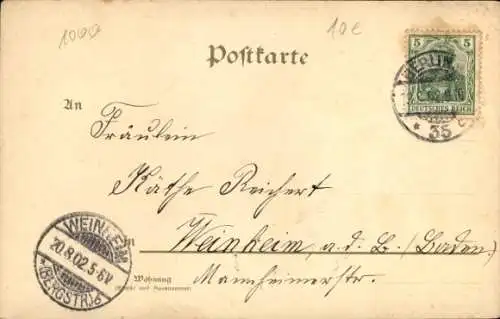 1000
10€
Postkarte
5
DEUTSCHES REICH
BERLIN
* 35
An
Fräulein
Käthe Reichert
in
Weinheim, a. d. B. (Baden)
Wohnung
Mannheimerstr.
WEINHEIM
20.8.02.5-6V
*(BERGSTR)*